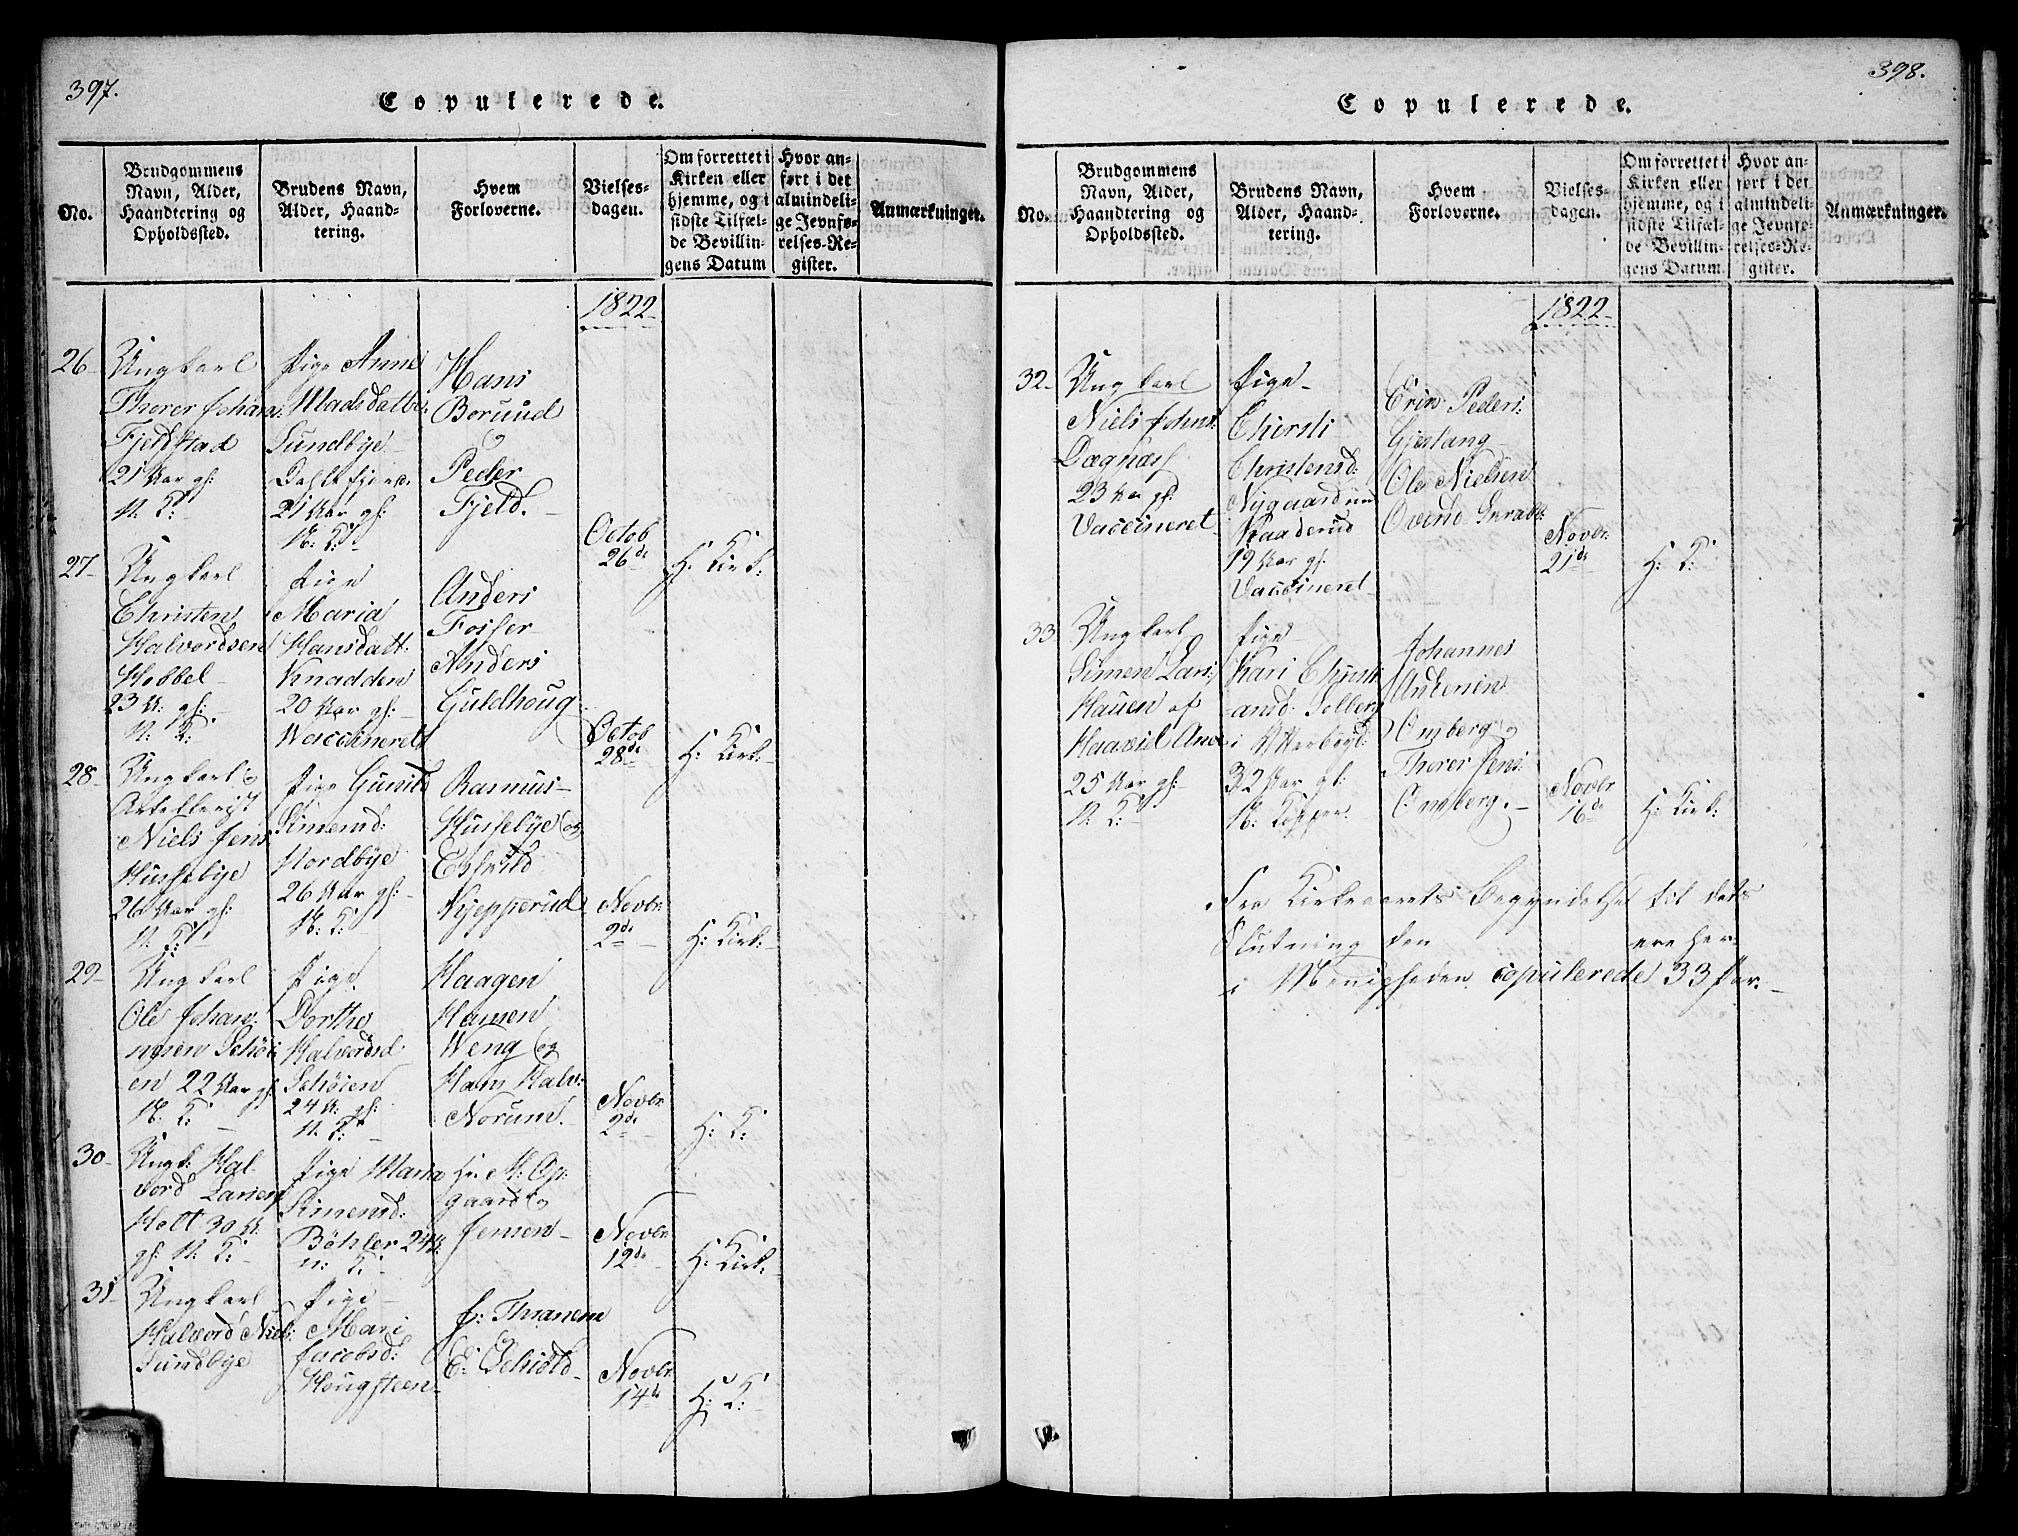 397.
Copulerede.
No.
Brudgommens
Navn, Alder,
Haandtering og
Opholdssted.
Brudens Navn,
Alder, Haand-
tering.
Hvem
Forloverne.
Vielses-
dagen.
Om forrettet i
Kirken eller
hjemme, og i
sidste Tilfæl-
de Bevillin-
gens Datum
Hvor an-
ført i det
almindeli-
ge Jevnfø-
relses-Re-
gister.
Anmærkninger.
1822
26
Ungkarl
Thorer Johan:
Fjeldstad
21 Aar gl:
N. K:
Pige Anne
Madsdatter
Sundbye
21 Aar gl:
N. K:
Hans
Borund
og
Peder
Fjeld.
Octob
26de
H: Kirk:
27
Ungkarl
Christen
Halvordsen
Hobbel
23 A: gl:
N. K:
Pige
Maria
Hansdatt:
Knadden
20 Aar gl:
Waccineret
Anders
Fosser
Anders
Guldhoug
Octob
28de
H: Kirk:
28
Ungkarl og
Artellerist
Niels Jens
Hussebye
26 Aar gl:
N. K:
Pige Gunild
Simensd:
Nordbye
26 Aar gl:
N. K:
Rasmus
Hussebye og
Eskild
Kjepperud
Novbr
2de
H: Kirk:
29
Ungkarl
Ole Johan
nesen Schøi
en 22 Aar gl:
N. K:
Pige
Dorthe
Halvordsd
Schøien
24 A: gl:
N. K:
Haagen
Hansen
Weng og
Hans Halv:
Norund.
Novbr
2de
H: K:
30
Ungk: Hal
vord Larsen
Holt 30 A:
gl: N. K:
Pige Maria
Simensd:
Böhler 24 A:
n: K:
Hr. M: Op
gaard og
Jensen
Novbr
12de
H: Kirk:
31
Ungkarl
Halvord Niel:
Sundbye
Pige
Mari
Jacobsd:
Hougsteen
J: Thranem
E: Schiöld
Novbr
14de
H: K:
398.
Copulerede.
No.
Brudgommens
Navn, Alder,
Haandtering og
Opholdssted.
Brudens Navn,
Alder, Haand-
tering.
Hvem
Forloverne.
Vielses-
dagen.
Om forrettet i
Kirken eller
hjemme, og i
sidste Tilfæl-
de Bevillin-
gens Datum.
Hvor an-
ført i det
almindeli-
ge Jevnfø-
relses-Re-
gister.
Anmærkninger.
1822
32
Ungkarl
Niels Johns:
Dægnæs
23 Aar gl:
Vaccineret
Pige
Chersti
Christensd:
Nygaard
Raaderud
19 Aar gl:
Vaccineret
Peders:
Gjeslang
Ole Nielsen
Novbr
21de
H: K:
33
Ungkarl
Simen Lars:
Hauen af
25 Aar gl:
N. K:
Pige
Kari Christi
ansd: Solberg
i Ytterbøyl:
32 Aar gl:
N. Kopper.
Johannes
Omberg og
Thorer Jens:
Omberg.
Novbr
16de
H: Kirk:
Fra Kirkeaarets Begyndelse til dets
Slutning den ere her
i Menigheden copulerede 33 Par.